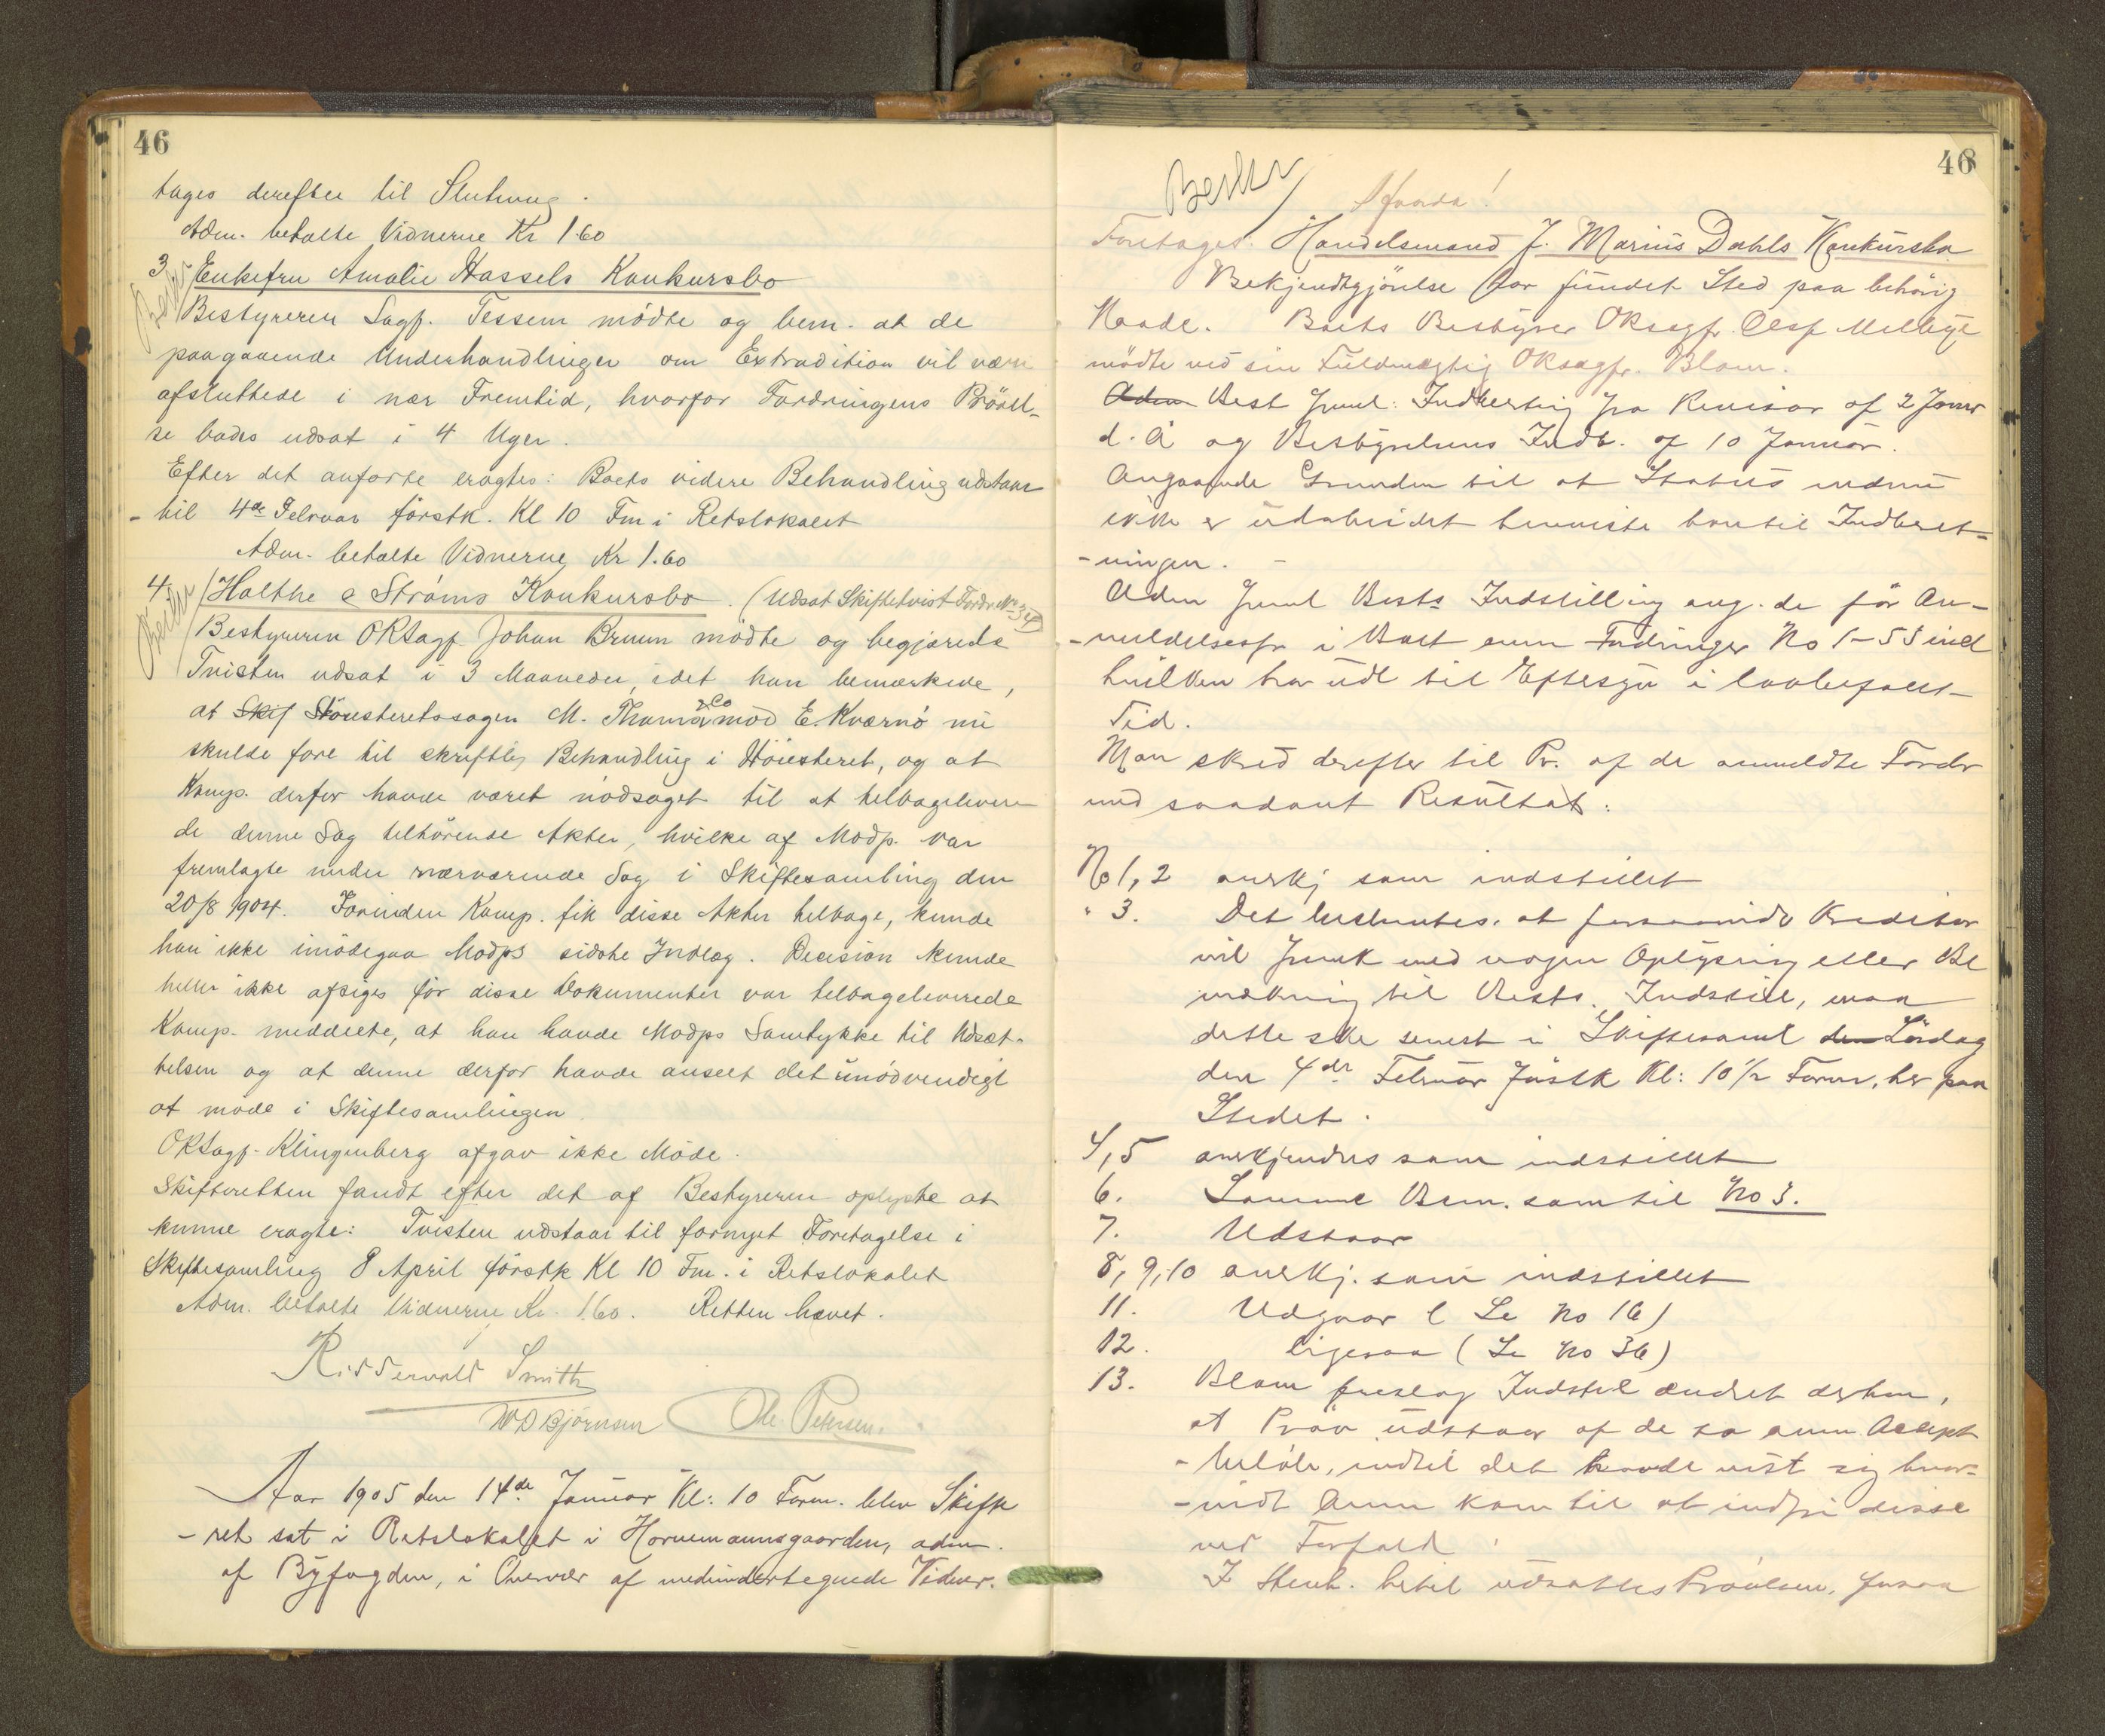 46
tages derefter til Slutning.
Adm. betalte Vidnerne Kr 1.60
3 Enkefru Amalie Hassels Konkursbo
Bestyreren Sagf. Tessem mødte og bem. at de
paagaaende Underhandlinger om Extradition vil være
afsluttede i nær Fremtid, hvorfor Fordringens Prövel-
se bades udsat i 4 Uger.
Efter det anførte eragtes: Boets videre Behandling udstaar
- til 4de Februar förstk. Kl 10 Fm i Retslokalet
Adm. betalte Vidnerne Kr 1.60
4 Halthe & Ströms Konkursbo. (Udsat Skiftetvist Fordr. No 34)
Bestyreren ORSagf Johan Bruun mödte og begjærede
Tvisten udsat i 3 Maaneder, idet han bemærkede,
at Skif Höiesteretssagen M. Thams & Co mod E. Kværnö nu
skulde fore til skriftlig Behandling i Höiesteret, og at
Komp. derfor havde været nödsaget til at tilbagelevere
de denne Sag tilhörende Akter, hvilke af Modp. var
fremlagte under nærværende Sag i Skiftesamling den
20/8 1904. Forinden Komp. fik disse Akter tilbage, kunde
han ikke imödegaa Modps sidste Indlæg. Decision kunde
heller ikke afsiges för disse Dokumenter var tilbageleverede
Komp. meddelte, at han havde Modps Samtykke til Udsæt-
telsen og at denne derfor havde anseet det unödvendigt
at möde i Skiftesamlingen
ORSagf. Klingenberg afgav ikke Möde.
Skifteretten fandt efter det af Bestyreren oplyste at
kunne eragte: Tvisten udstaar til fornyet Foretagelse i
Skiftesamling 8 April förstk Kl 10 Fm. i Retslokalet
Adm. betalte Vidnerne Kr. 1.60. Retten hævet.
Riddervold Smith
W D Björnsen Ole Petersen.
Aar 1905 den 14de Januar Kl: 10 Form. blev Skifte
- ret sat i Retslokalet i Hornemannsgaarden, adm.
af Byfogden, i Overvær af medundertegnede Vidner.
46
Foretaget. Handelsmand J. Marius Dahls Konkursbo
Bekjendtgjörelse har fundet Sted paa behörig
Maade. Boets Bestyrer ORsagf. Olaf Mellbye
mödte ved sin Fuldmægtig ORsagfr. Blom.
Adm Best freml: Indberetning fra Revisor af 2 Januar
d. A og Bestyrelsens Indb. af 10 Januar.
Angaaende Grunden til at Status endnu
ikke er udarbeidet henviste han til Indberet-
- ningen. -
Adm freml Bests Indstilling ang. de för An-
- meldelsesfr i Boet anm Fordringer No 1-55 incl
hvilken har udl til Eftersyn i lovbefalet
Tid.
Man skred derefter til Pr. af de anmeldte Fordr
med saadant Resultat:
No 1, 2 anerkj som indstillet
" 3. Det besluttes. at forsaavidt Kreditor
vil fremk med nogen Oplysning eller Be
mærkning til Bests. Indstill, maa
dette ske senest i Skiftesaml den Lördag
den 4de Februar förstk Kl: 10 1/2 Form. her paa
Stedet.
4, 5 anerkjendes som indstillet
6. Samme Bem. som til No 3.
7. Udstaar
8, 9, 10 anerkj. som indstillet
11. Udgaar (Se No 16)
12. ligesaa (Se No 36)
13. Blom foreslog Indstil ændret derhen,
at Pröv udstaar af de to anm Accept
- belöb, indtil det havde vist sig hvor-
- vidt Anm kom til at indfri disse
ved Forfald.
I Henh. hertil udsattes Prövelsen, forsaa